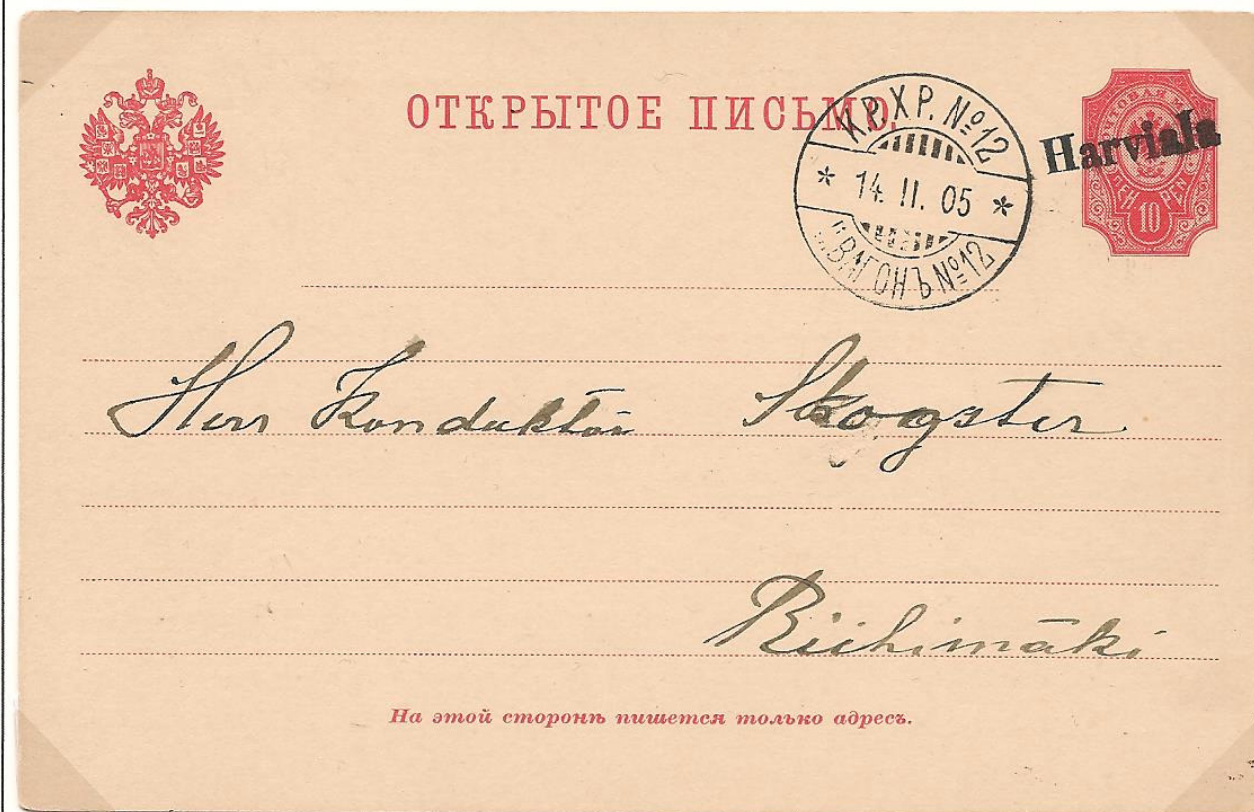 ОТКРЫТОЕ ПИСЬМО.
K.P.XP. №12
14. II. 05
ВАГОНЪ №12
Harviala
ПЕН 10 PEN
Herr Konduktör Skogster
Riihimäki
На этой сторонѣ пишется только адресъ.